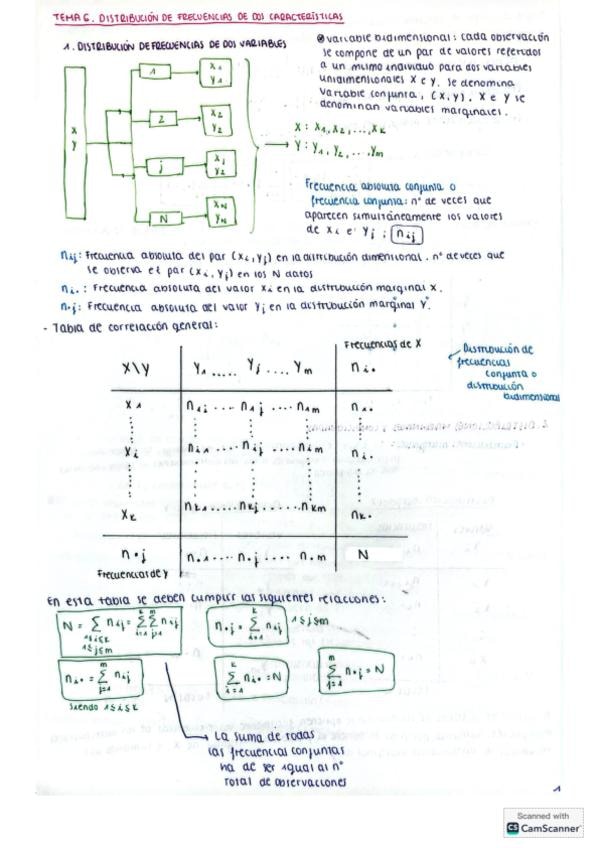 TEMA 6. DISTRIBUCIÓN DE FRECUENCIAS DE DOS CARACTERÍSTICAS
1. DISTRIBUCIÓN DE FRECUENCIAS DE DOS VARIABLES
variable bidimensional: cada observación
se compone de un par de valores referidos
a un mismo individuo para dos variables
unidimensionales X e Y. Se denomina
variable conjunta, (X, Y). X e Y se
denominan variables marginales.
X
Y
1
X1
Y1
2
X2
Y2
j
Xj
Y2
N
XN
YN
X: X1, X2, ..., XK
Y: Y1, Y2, ..., Ym
Frecuencia absoluta conjunta o
frecuencia conjunta: nº de veces que
aparecen simultáneamente los valores
de xi e yj; nij
nij: Frecuencia absoluta del par (xi, yj) en la distribución dimensional. nº de veces que
se observa el par (xi, yj) en los N datos
ni.: Frecuencia absoluta del valor xi en la distribución marginal X.
n.j: Frecuencia absoluta del valor Yj en la distribución marginal Y.
- Tabla de correlación general:
Frecuencias de X
X\Y Y1 ..... Yj .... Ym ni.
Distribución de
frecuencias
conjunta o
distribución
bidimensional
X1 n1j .... n1j .... n1m n1.
Xi ni1 .... nij .... nim ni.
XK nk1 ..... nkj ..... nkm nk.
n.j n.1 .... n.j .... n.m N
Frecuencias de Y
En esta tabla se deben cumplir las siguientes relaciones:
N = Σ nij = Σ Σ nij
1≤i≤k
1≤j≤m
n.j = Σ nij 1≤j≤m
ni. = Σ nij
siendo 1≤i≤k
Σ ni. = N
Σ n.j = N
La suma de todas
las frecuencias conjuntas
ha de ser igual al nº
total de observaciones
1
Scanned with
CS CamScanner